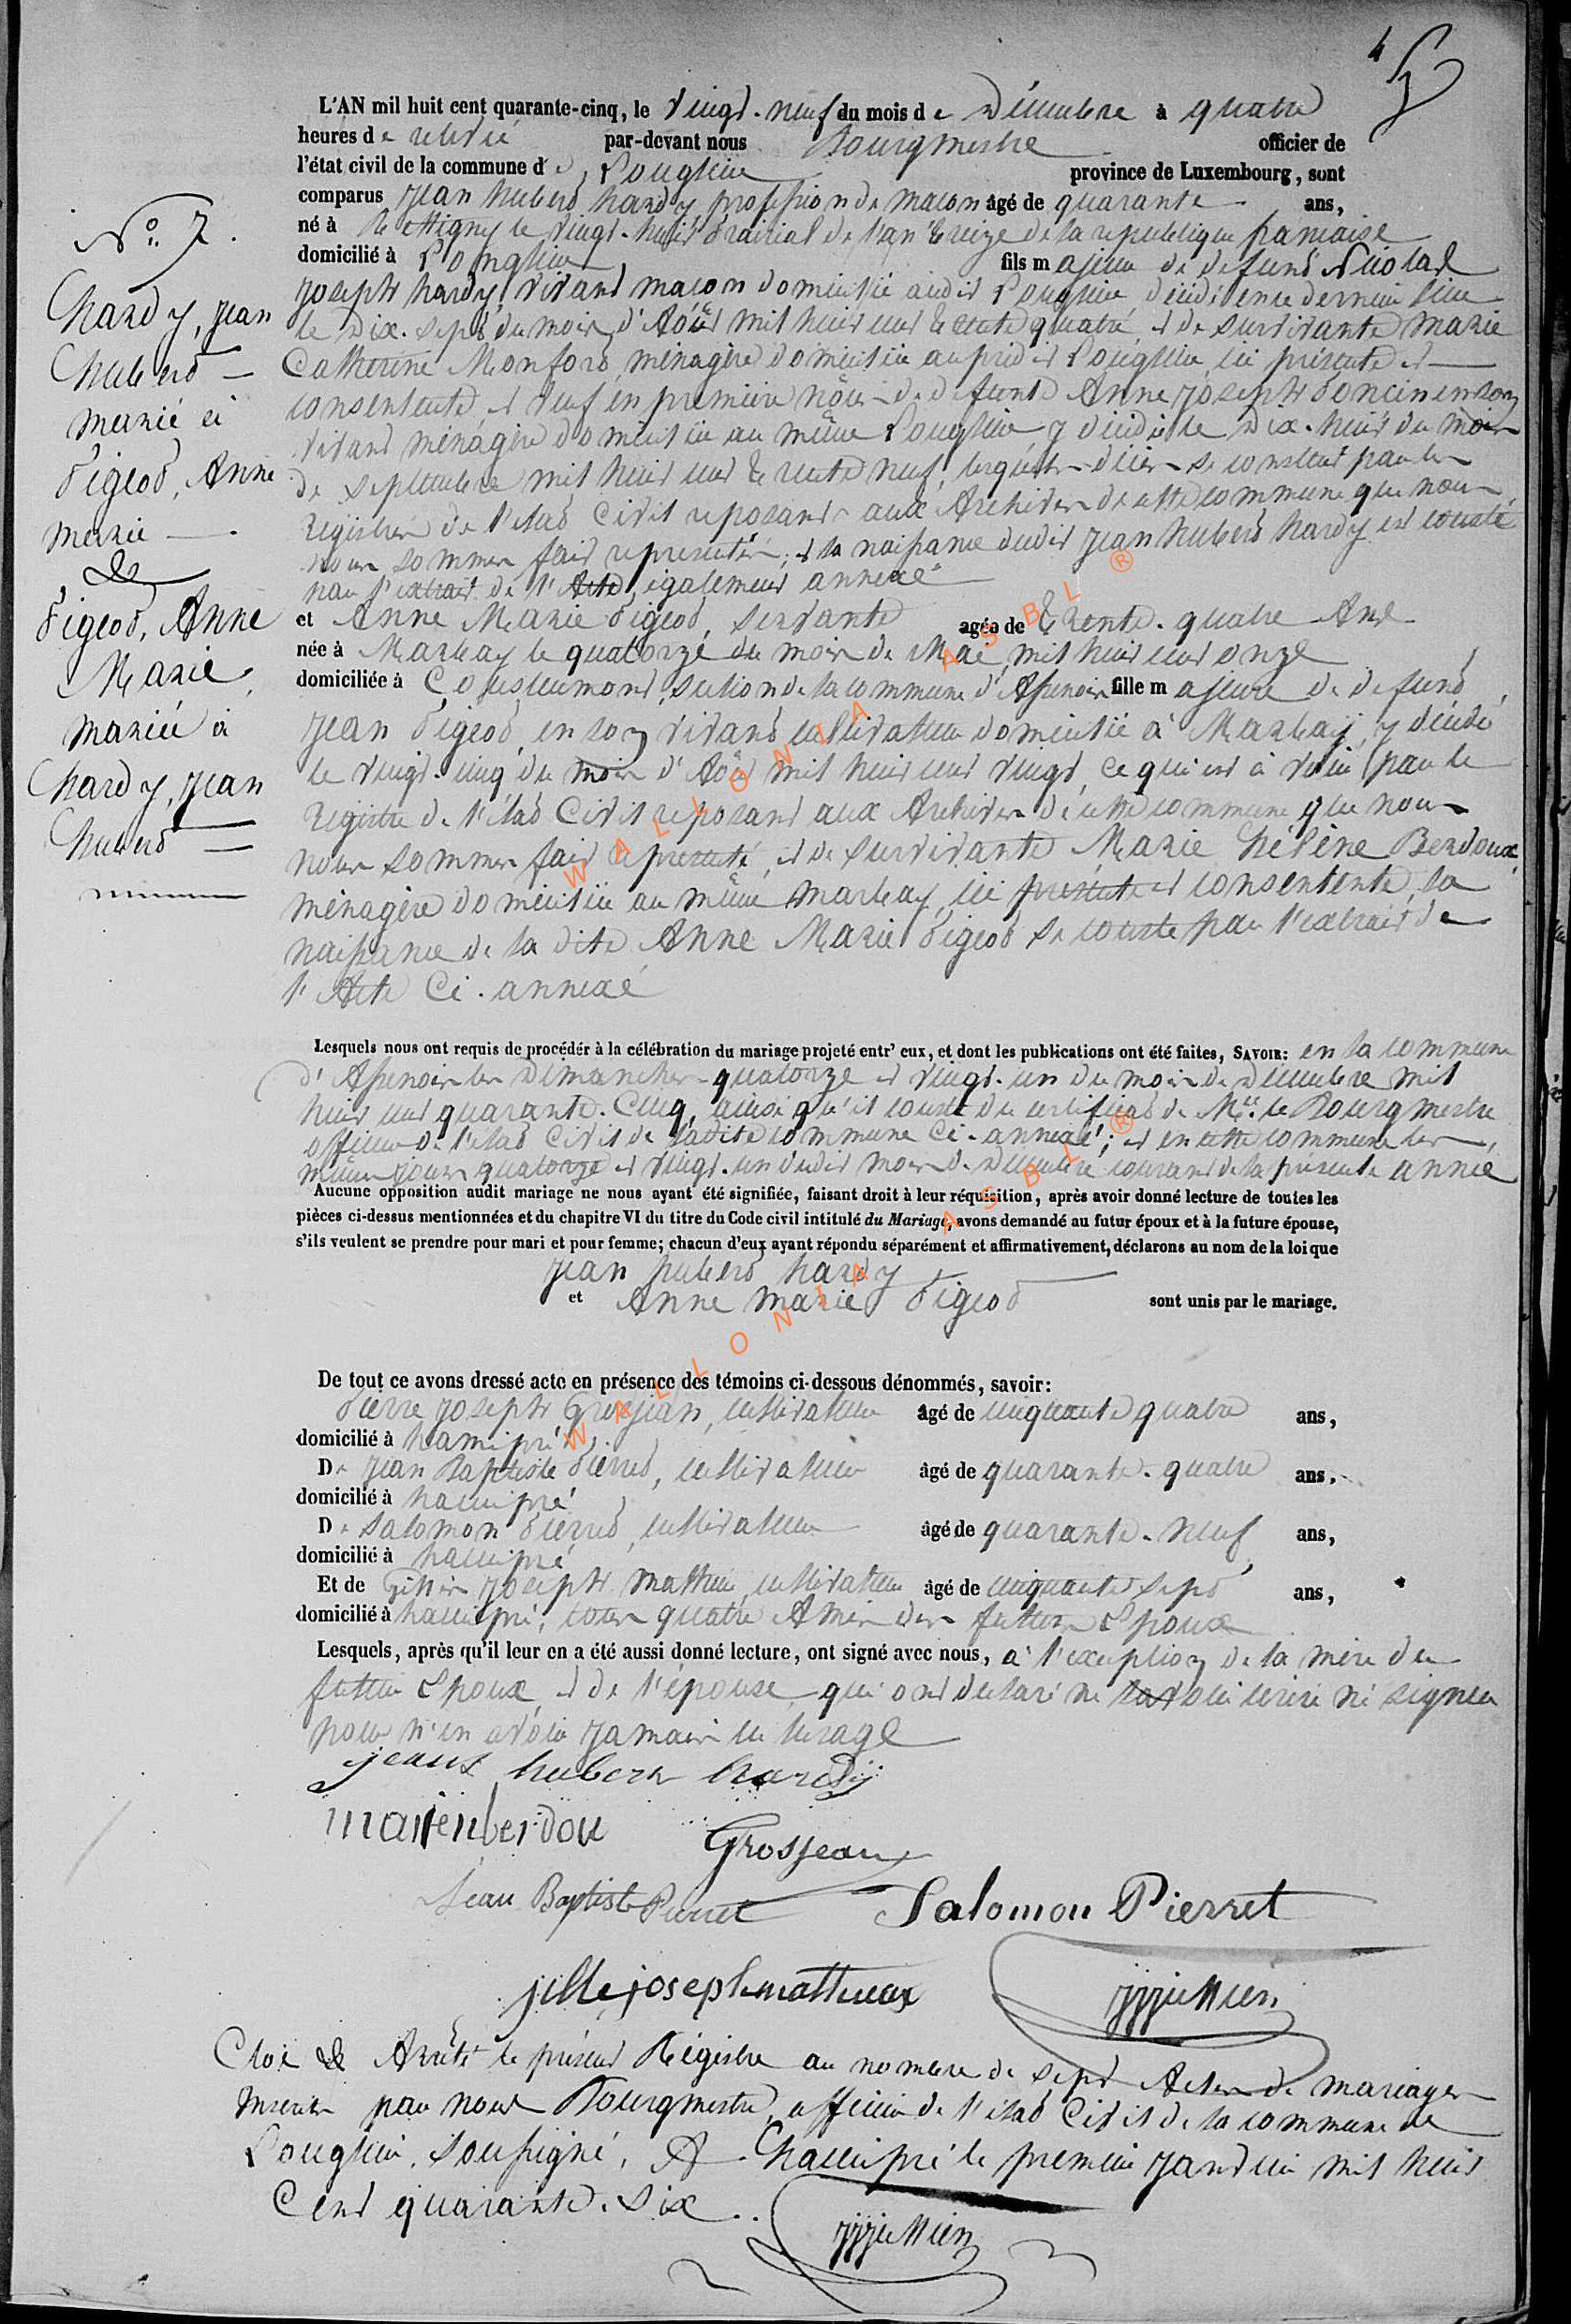 4
L'AN mil huit cent quarante-cinq, le vingt-neuf du mois de Décembre à quatre
heures de relevée par-devant nous Bourgmestre officier de
l'état civil de la commune de Longlier province de Luxembourg, sont
comparus Jean hubert hardy profession de macon âgé de quarante ans,
né à le vingt-huit prairial de l'an treize de la republique francaise
domicilié à Longlier fils majeur de defunt Nicolas
Joseph hardy vivant macon domicilié audit Longlier décédé en ce dernier lieu
le dix-sept du mois d'Août mil huit cent trente quatre et de survivante Marie
Catherine Monfort ménagère domiciliée au prédit Longlier, ici présente et
consentente et veuf en première nôce de defunte Anne Joseph Poncin en son
vivant ménagère domiciliée au même Longlier y décédée le dix-huit du mois
de septembre mil huit cent trente neuf, lesquels décès se constent par les
registres de l'etat Civil reposants aux Archives de cette commune que nous
nous sommes fait représenter; et la naissance dudit Jean hubert hardy est consté
par l'extrait de l'Acte également annexé
et Anne Marie Pigeot, servante agée de trente-quatre Ans
née à Marbay le quatorze du mois de Mai mil huit cent onze
domiciliée à section de la commune d'Assenois fille majeure de defunt
Jean Pigeot, en son vivant cultivateur domicilié à Marbay, y décédé
le vingt-cinq du mois d'Août mil huit cent vingt, ce qui est à voir par le
registre de l'etat Civil reposant aux Archives de cette commune que nous
nous sommes fait représenté, et de survivante Marie hélène Berdoux,
ménagère domiciliée au même Marbay, ici présente et consentente, la
naissance de la dite Anne Marie Pigeot se conste par l'extrait de
l'Acte Ci-annexé
No. 7.
hardy, Jean
hubert
marié à
Pigeot, Anne
marie
&
Pigeot, Anne
Marie,
mariée à
hardy, Jean
hubert
Lesquels nous ont requis de procéder à la célébration du mariage projeté entr' eux, et dont les publications ont été faites, SAVOIR: en la commune
d'Assenois les Dimanches quatorze et vingt-un du mois de Décembre mil
huit cent quarante-Cinq, ainsi qu'il conste du certificat de Mr. le Bourgmestre
officier de l'etat Civil de ladite commune Ci-annexé; et en cette commune les
mêmes jours quatorze et vingt-un dudit mois de Décembre courant de la présente année
Aucune opposition audit mariage ne nous ayant été signifiée, faisant droit à leur réquisition, après avoir donné lecture de toutes les
pièces ci-dessus mentionnées et du chapitre VI du titre du Code civil intitulé du Mariage, avons demandé au futur époux et à la future épouse,
s'ils veulent se prendre pour mari et pour femme; chacun d'eux ayant répondu séparément et affirmativement, déclarons au nom de la loi que
Jean hubert hardy
et Anne marie Pigeot sont unis par le mariage.
De tout ce avons dressé acte en présence des témoins ci-dessous dénommés, savoir:
Pierre Joseph Grosjean, cultivateur âgé de cinquante quatre ans,
domicilié à hamipré
De Jean Baptiste Pierret, cultivateur âgé de quarante-quatre ans,
domicilié à hamipré
De Salomon Pierret, cultivateur âgé de quarante-neuf ans,
domicilié à hamipré
Et de Gilles Joseph Mathieu, cultivateur âgé de cinquante sept ans,
domicilié à hamipré, tous quatre Amis des futurs Epoux
Lesquels, après qu'il leur en a été aussi donné lecture, ont signé avec nous, à l'exception de la mère du
futur Epoux, et de l'épouse qui ont declaré ne savoir écrire ni signer
pour n'en avoir jamais eu l'usage
jean hubert hardy
marienberdou Grosjean
Jean Baptiste Pierret Salomon Pierret
jille joseph mattieux
Clos & Arrêté le présent Régistre au nombre de sept Actes de mariages
Inscrits par nous Bourgmestre, officier de l'etat Civil de la commune de
Longlier, soussigné, A hamipré le premier Janvier mil huit
Cent quarante-six
WALLONIA ASBL ®
WALLONIA ASBL ®